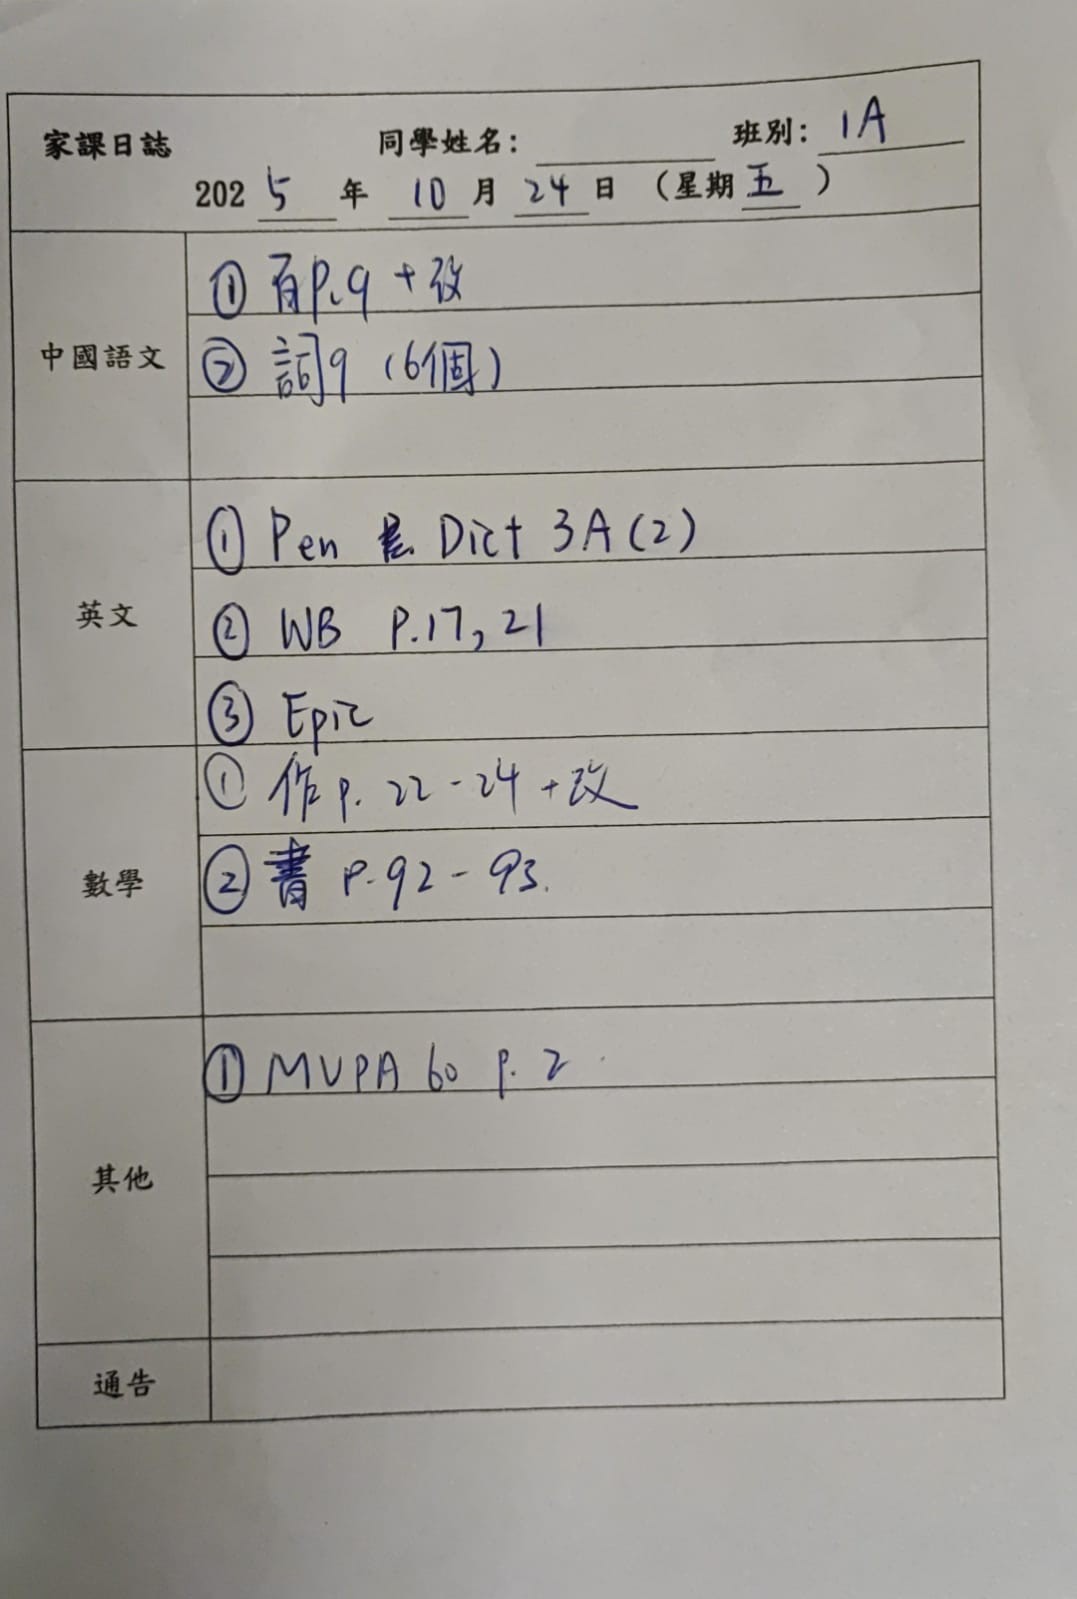 家課日誌 同學姓名： 班別：1A
2025年10月24日（星期五）
中國語文
① 百P.9 + 改
② 詞9 (6個)
英文
① Pen Dict 3A (2)
② WB P.17, 21
③ Epic
數學
① 作P. 22 - 24 + 改
② 書 P. 92 - 93.
其他
① MVPA 60 P. 2
通告